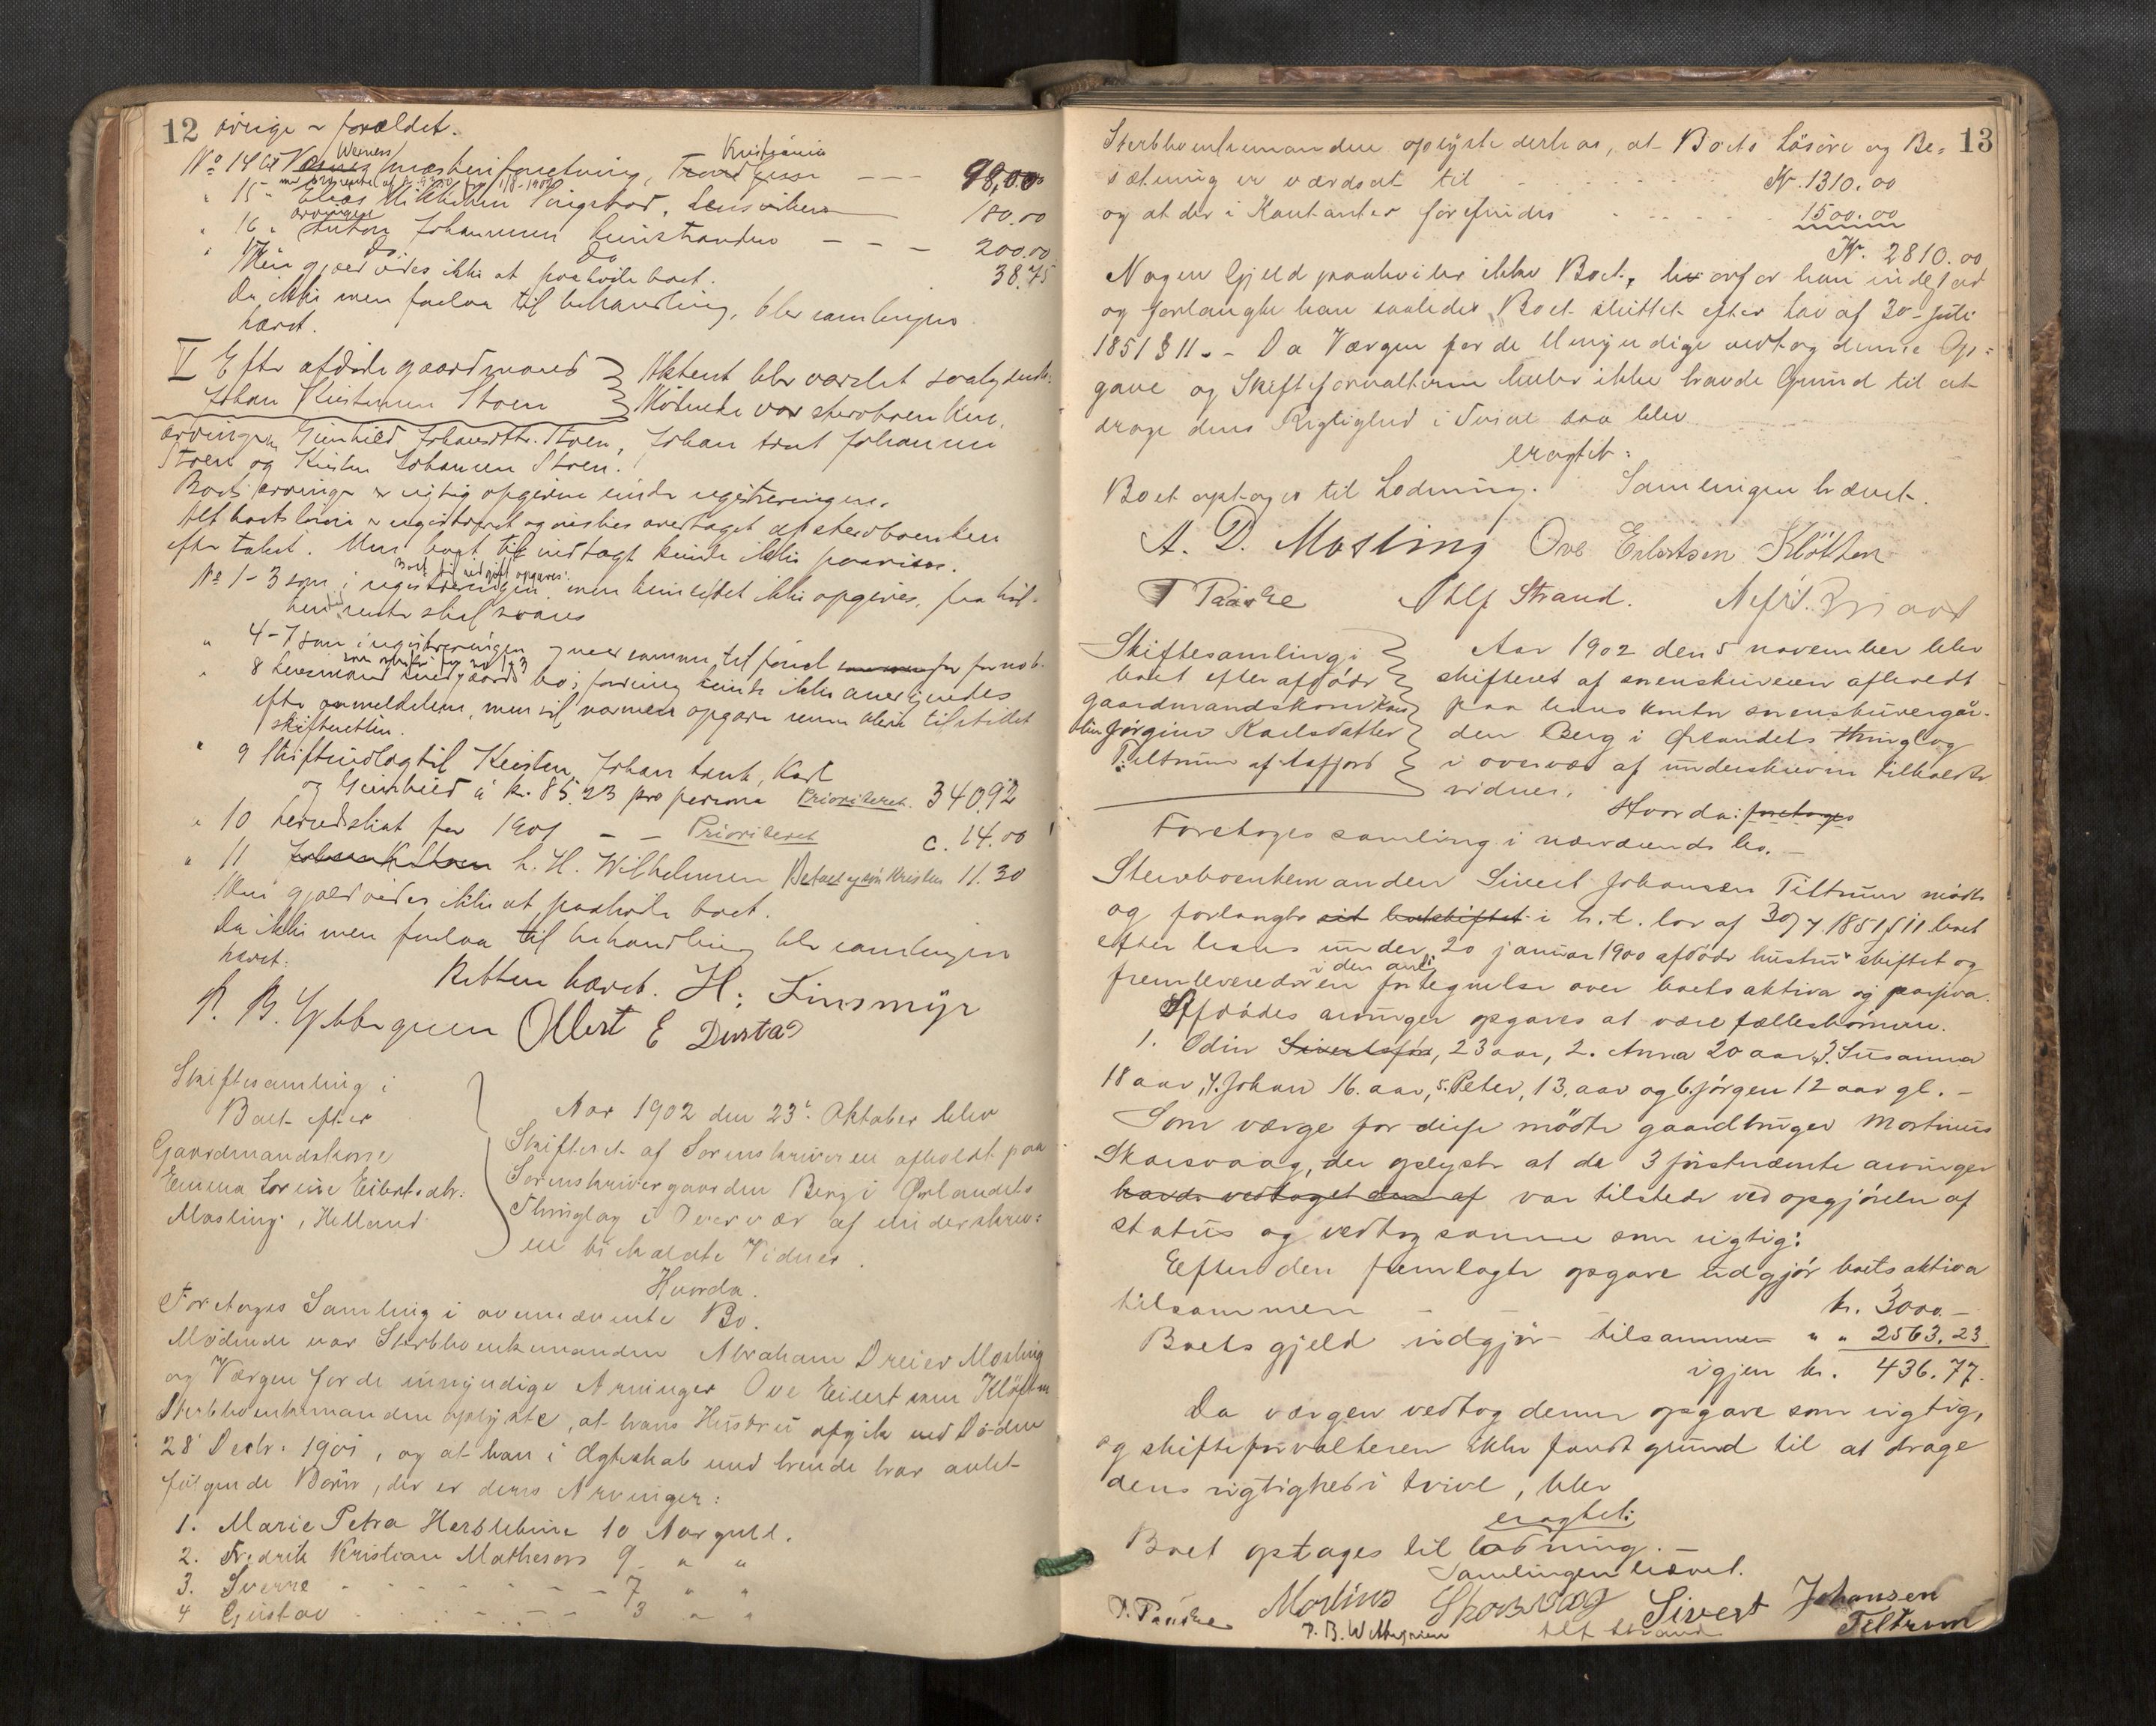 12
øvrige ~ forældet.
No 14
Werness
Kristiania
98,00
" 15 - Elias Mikkelsen Singstad, Lensviken
180.00
" 16 "
Anton Johannesen
200.00
Do Do
38.75
Mere gjæld vides ikke at paahvile boet.
Da ikke mere forelaa til behandling, blev samlingen
hævet.
V Efter afdøde gaardmand
Johan Kristensen Stoen
Aktent blev
Mødende var
arvingen Gunhild Johansdtr. Stoen, Johan
Stoen og Kristen Johansen Stoen.
Boets arvinger er rigtig opgivne under registreringen.
Alt boets løsøre er registreret og
efter takst. Mere boet tilhørende
No 1-3 som i registreringen, men kunde ikke opgives, fra
rente skal svares
" 4-7 som i registreringen
" 8 Lensmand bo; fordring kunde ikke anerkjendes
efter anmeldelsen, men vil nærmere opgave
skifteretten.
" 9 Skifteudlæg til Kristen, Johan, Karl
og Gunhild á kr. 85.23 pro persona Prioriteret. 340.92
" 10 herredskat for 1901 - - Prioriteret c. 14.00
" 11 L. H. Wilhelmsen Betalt af Kristen 11.30
Mere gjæld vides ikke at paahvile boet.
Da ikke mere forelaa til behandling blev samlingen
hævet.
Retten hævet. H. Finsmyr
Albert E
Skiftesamling i
Boet efter
Gaardmandskone
Emma Lorene Eilertsdtr:
Masling, Helland
Aar 1902 den 23. Oktober blev
Skifteret af Sorenskriveren afholdt paa
Sorenskrivergaarden Berg i Ørlandets
Thinglag i Overvær af underskrev=
ne tilkaldte Vidner.
Hvorda.
Foretoges Samling i ovennævnte Bo.
Mødende var Sterbboenkemanden Abraham Dreier Masling
og Værgen for de umyndige Arvinger Ove Eilertsen Kløften
Sterbboenkemanden oplyste, at hans Hustru afgik ved Døden
28' Decbr. 1901, og at han i Ægteskab med hende har avlet
følgende Børn, der er dens Arvinger:
1. Marie Petra Herslebine 10 Aar gml.
2. Fredrik Kristian Mathesøn 9 " "
3. Sverre - - - - - - 7 " "
4 Gustav - - - - - 3 " "
13
Sterbboenkemanden oplyste derhos, at Boets Løsøre og Be=
sætning er værdsat til - - - - - Kr. 1310.00
og at der i Kontanter forefindes - - - - 1500.00
Kr. 2810.00
Nogen Gjeld paahviler ikke Boet, hvorfor han indestod
og forlangte han saaledes Boet skiftet efter Lov af 30- Juli
1851 § 11. - Da Værgen for de Umyndige vedtog denne Op=
gave og Skifteforvalteren heller ikke havde Grund til at
drage dens Rigtighed i Tvivl saa blev
eragtet:
Boet optages til Lodning. Samlingen hævet.
A. D. Masling Ove Eilertsen Kløften
T Paaske Alf Strand.
Skiftesamling i
boet efter afdøde
gaardmandskone
Jørgine Karlsdatter
Tiltrum af Aafjord
Aar 1902 den 5 november blev
skifteret af sorenskriveren afholdt
paa hans kontor sorenskrivergaar-
den Berg i Ørlandets thinglag
i overvær af underskrevne tilkaldte
vidner.
Hvorda: foretoges
Foretoges samling i nærværende bo. -
Sterboenkemanden Sivert Johansen Tiltrum mødte
og forlangte sit boetskiftet i h. t. lov af 30/7 1851 § 11. boet
efter hans under 20 januar 1900 afdøde hustru skiftet og
fremleverede en fortegnelse over boets aktiva og passiva.
Afdødes arvinger opgaves at være fællesbørnene.
1. Odin Sivertsøn, 23 aar, 2. Anna 20 aar, 3. Susanna
18 aar, 4. Johan 16. aar, 5. Peter, 13. aar og 6. Jørgen 12 aar gl. -
Som værge for disse mødte gaardbruger Mortinus
Skarsvaag, der oplyste at de 3 førstnævnte arvinger
havde vedtaget den af var tilstede ved opgjørelse af
status og vedtog samme som rigtig:
Efter den fremlagte opgave udgjør boets aktiva
tilsammen - - - kr. 3000.-
Boets gjeld udgjør tilsammen " " 2563.23
igjen kr. 436.77.
Da værgen vedtog denne opgave som rigtig,
og skifteforvalteren ikke fandt grund til at drage
dens rigtighed i tvivl, blev
eragtet:
Boet optages til lodning. -
Samlingen hævet.
T. Paaske Mortinus Skarsvaag Sivert Johansen
Tiltrum
Alf Strand